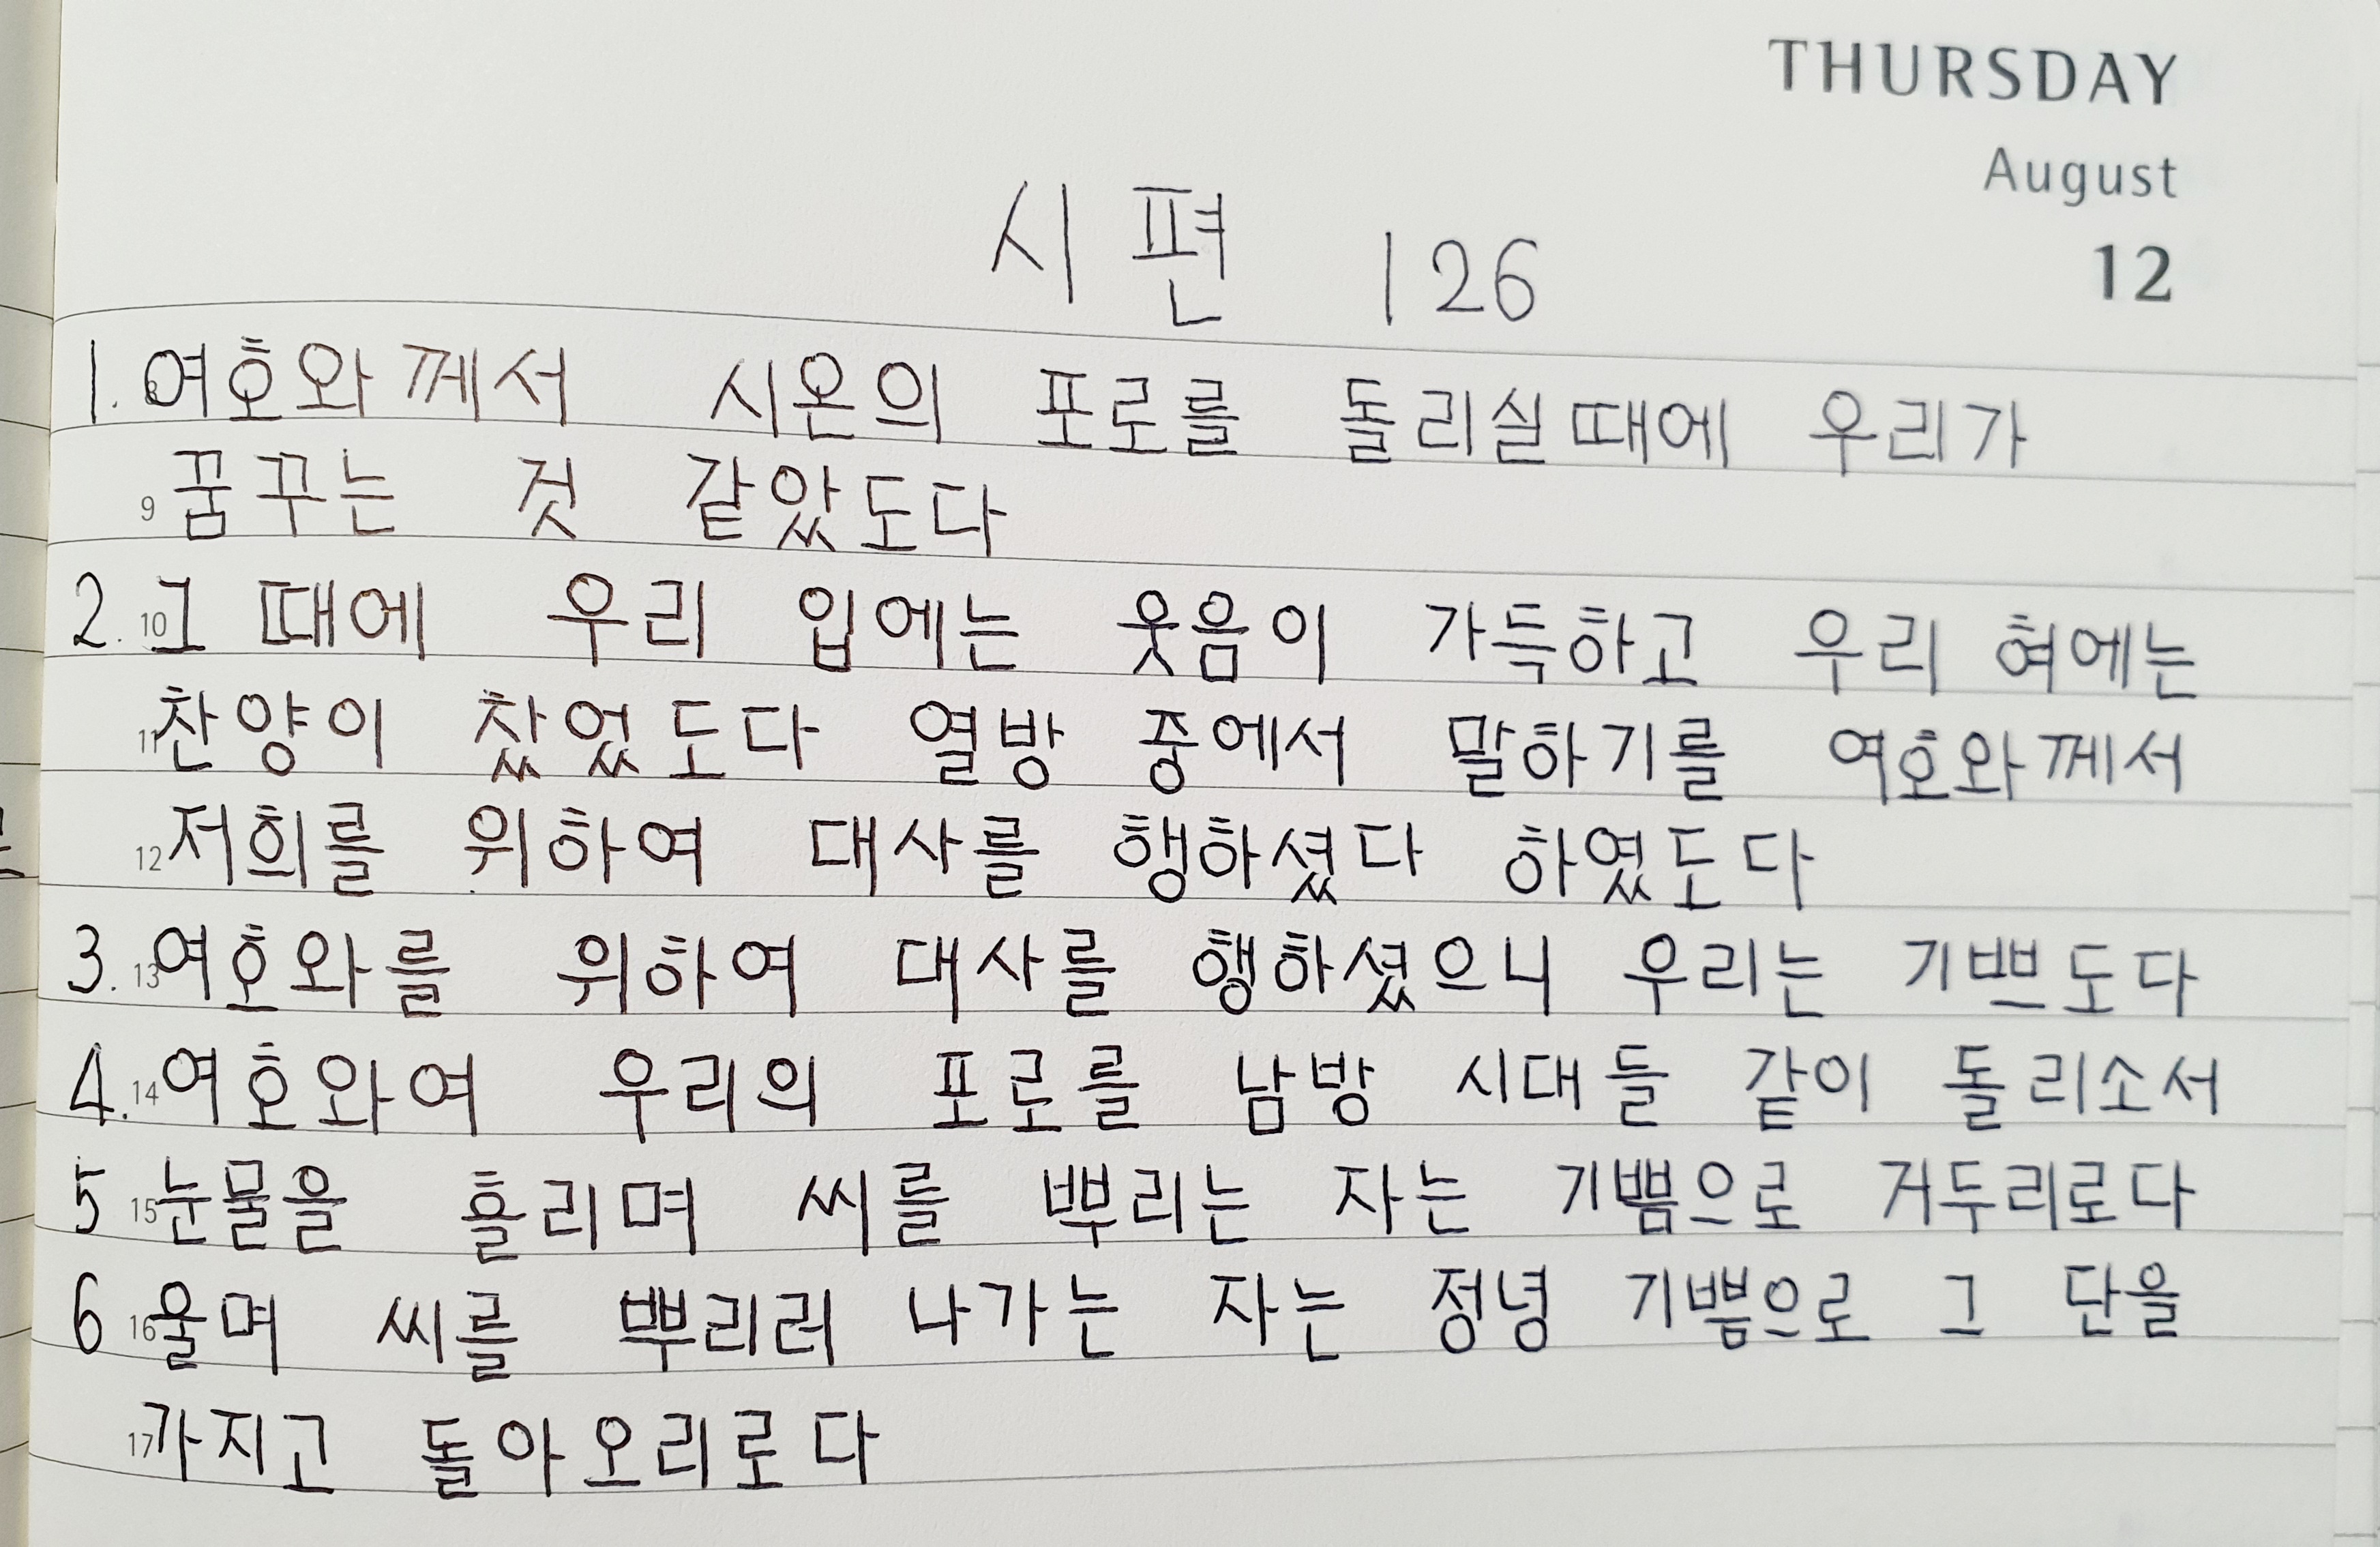 THURSDAY
August
12
시편 126
1. 8 여호와께서 시온의 포로를 돌리실때에 우리가
9 꿈꾸는 것 같았도다
2. 10 그 때에 우리 입에는 웃음이 가득하고 우리 혀에는
11 찬양이 찼었도다 열방 중에서 말하기를 여호와께서
12 저희를 위하여 대사를 행하셨다 하였도다
3. 13 여호와를 위하여 대사를 행하셨으니 우리는 기쁘도다
4. 14 여호와여 우리의 포로를 남방 시대들 같이 돌리소서
5 15 눈물을 흘리며 씨를 뿌리는 자는 기쁨으로 거두리로다
6 16 울며 씨를 뿌리러 나가는 자는 정녕 기쁨으로 그 단을
17 가지고 돌아오리로다